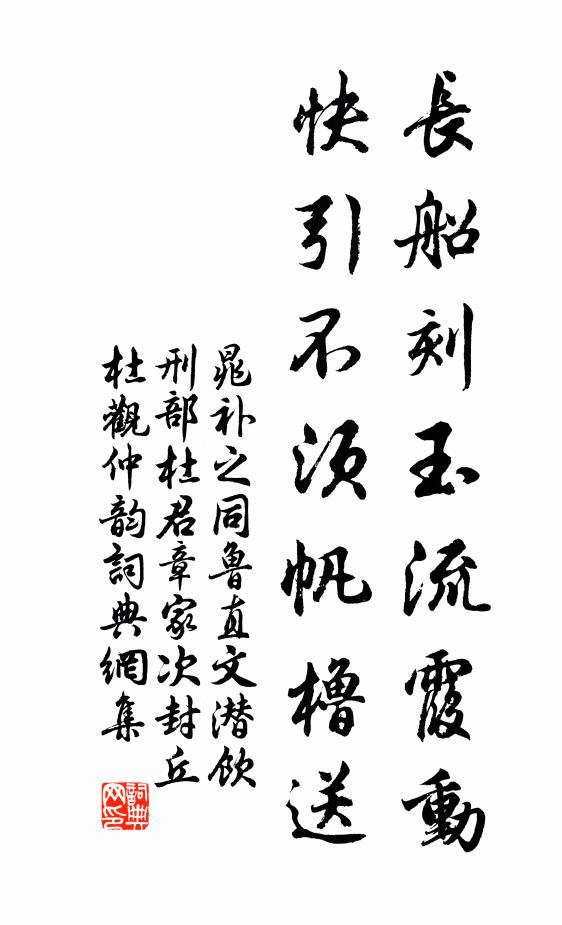 長船刻玉流霞動
快引不須帆櫓送
晁补之同魯直文潜飲
刑部杜君章家次封丘
杜觀仲韵詞典網集
詞典
网印